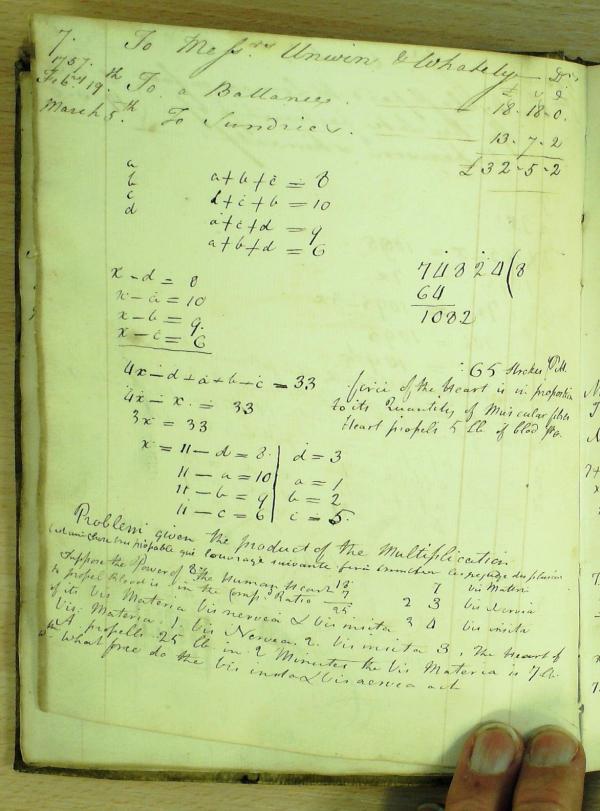 7. To Messrs Unwin & Whately — Drs
1757. £ s d
Febry 19th To a Ballance. — 18-18-0.
March 5th To Sundries. — 13-7-2
£32-5-2
a
b
c
d
a+b+c = 8
d+c+b = 10
a+c+d = 9
a+b+d = 6
74824(8
64
1082
x-d = 8
x-a = 10
x-b = 9.
x-c = 6
4x-d+a+b+c = 33
4x-x = 33
3x = 33
x = 11-d = 8. d = 3
11-a = 10 a = 1
11-b = 9 b = 2
11-c = 6 c = 5.
:65 Strokes
force of the Heart is in proportion
to its Quantity of Muscular fibres
Heart propels 5 lb of blod
Problem given the product of the Multiplication
Suppose the Power of the Human Heart
to propel blood is in the Comp. Ratio
of its Vis Materia Vis nervea & Vis insita
7 Vis Materia
2 3 Vis Nervia
3 4 Vis insita
Vis Materia 1. Vis Nervea 2. Vis insita 3. The Heart of
A. propells 25 lb in 2 Minutes the Vis Materia is 7 lb.
What force do the Vis insita & Vis nervea act